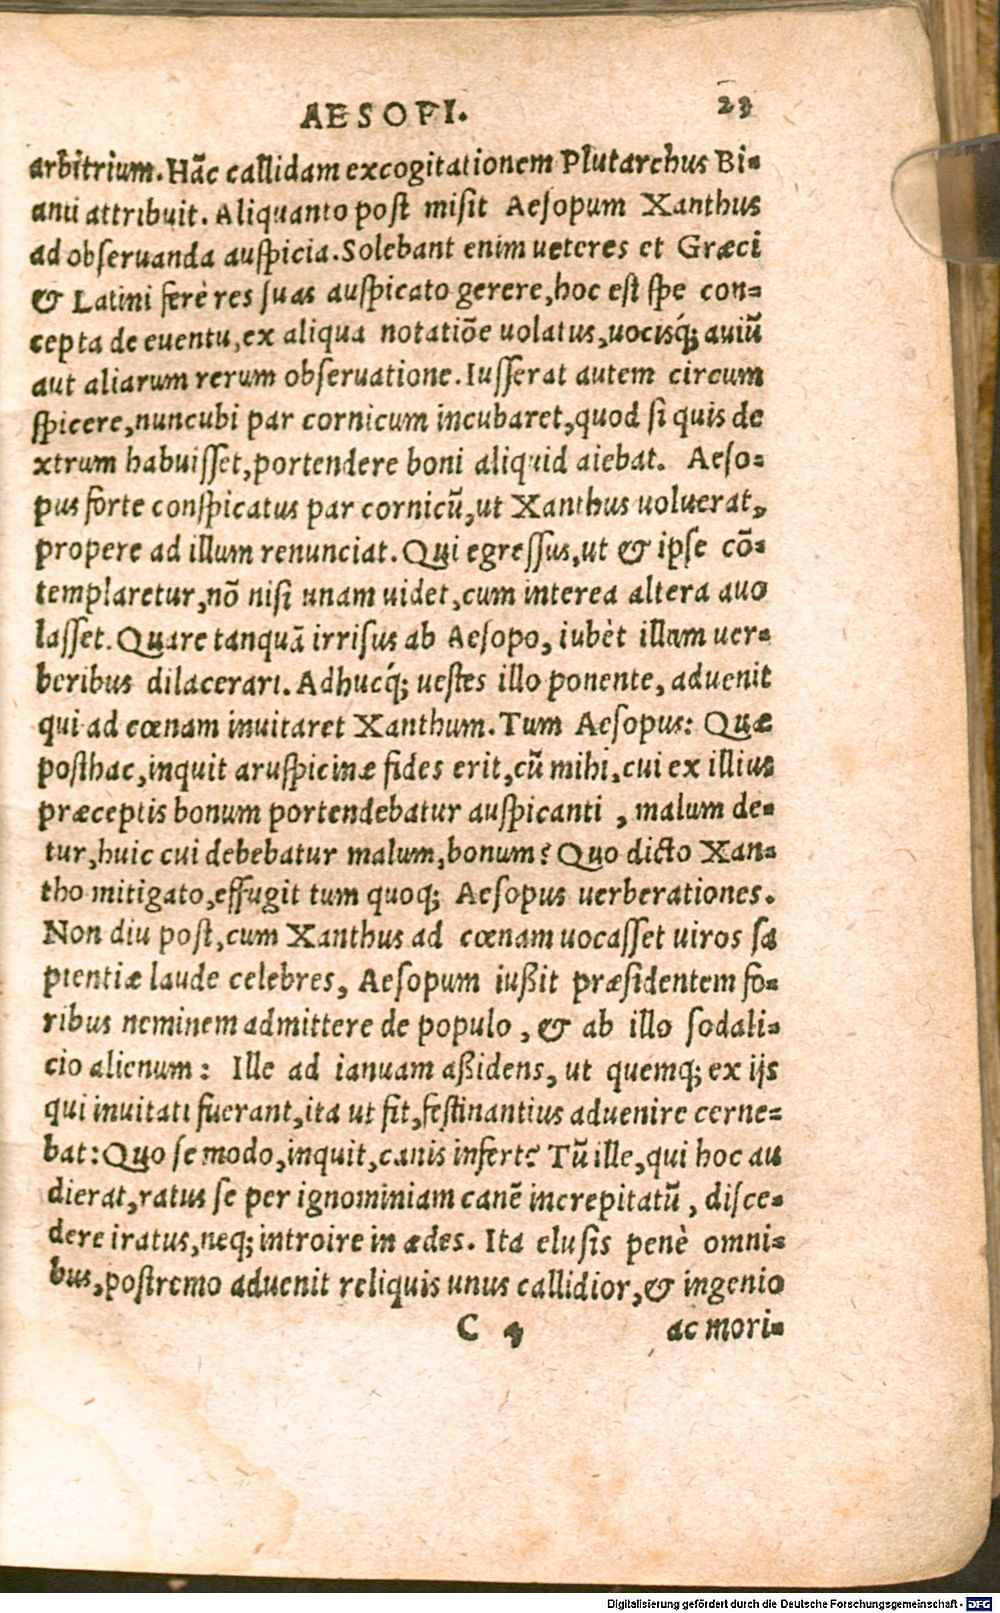 AESOPI. 23
arbitrium. Hãc callidam excogitationem Plutarchus Bi-
anti attribuit. Aliquanto post misit Aesopum Xanthus
ad obseruanda auspicia. Solebant enim ueteres et Græci
& Latini ferè res suas auspicato gerere, hoc est spe con-
cepta de euentu, ex aliqua notatiõe uolatus, uocisq́; auiũ
aut aliarum rerum obseruatione. Iusserat autem circum
spicere, nuncubi par cornicum incubaret, quod si quis de
xtrum habuisset, portendere boni aliquid aiebat. Aeso-
pus forte conspicatus par cornicũ, ut Xanthus uoluerat,
propere ad illum renunciat. Qui egressus, ut & ipse cõ-
templaretur, nõ nisi unam uidet, cum interea altera auo
lasset. Quare tanquã irrisus ab Aesopo, iubèt illum uer-
beribus dilacerari. Adhucq́; uestes illo ponente, aduenit
qui ad cœnam inuitaret Xanthum. Tum Aesopus: Quæ
posthac, inquit aruspicinæ fides erit, cũ mihi, cui ex illius
præceptis bonum portendebatur auspicanti, malum de-
tur, huic cui debebatur malum, bonum? Quo dicto Xan-
tho mitigato, effugit tum quoq; Aesopus uerberationes.
Non diu post, cum Xanthus ad cœnam uocasset uiros sa
pientiæ laude celebres, Aesopum iußit præsidentem fo-
ribus neminem admittere de populo, & ab illo sodali-
cio alienum: Ille ad ianuam aßidens, ut quemq; ex ijs
qui inuitati fuerant, ita ut fit, festinantius aduenire cerne-
bat: Quo se modo, inquit, canis infert? Tũ ille, qui hoc au
dierat, ratus se per ignominiam canẽ increpitatũ, disce-
dere iratus, neq; introire in ædes. Ita elusis penè omni-
bus, postremo aduenit reliquis unus callidior, & ingenio
C 4 ac mori-
Digitalisierung gefördert durch die Deutsche Forschungsgemeinschaft - DFG